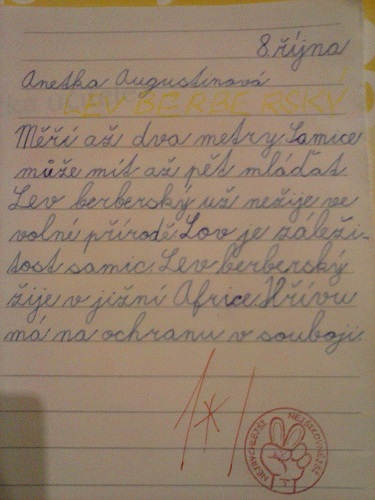 8. října
Anetka Augustinová
LEV BERBERSKÝ
Měří až dva metry. Samice
může mít až pět mláďat.
Lev berberský už nežije ve
volné přírodě. Lov je záleži-
tost samic. Lev berberský
žije v jižní Africe. Hřívu
má na ochranu v souboji.
1*
NEJRYCHLEJŠÍ NEJŠIKOVNĚJŠÍ